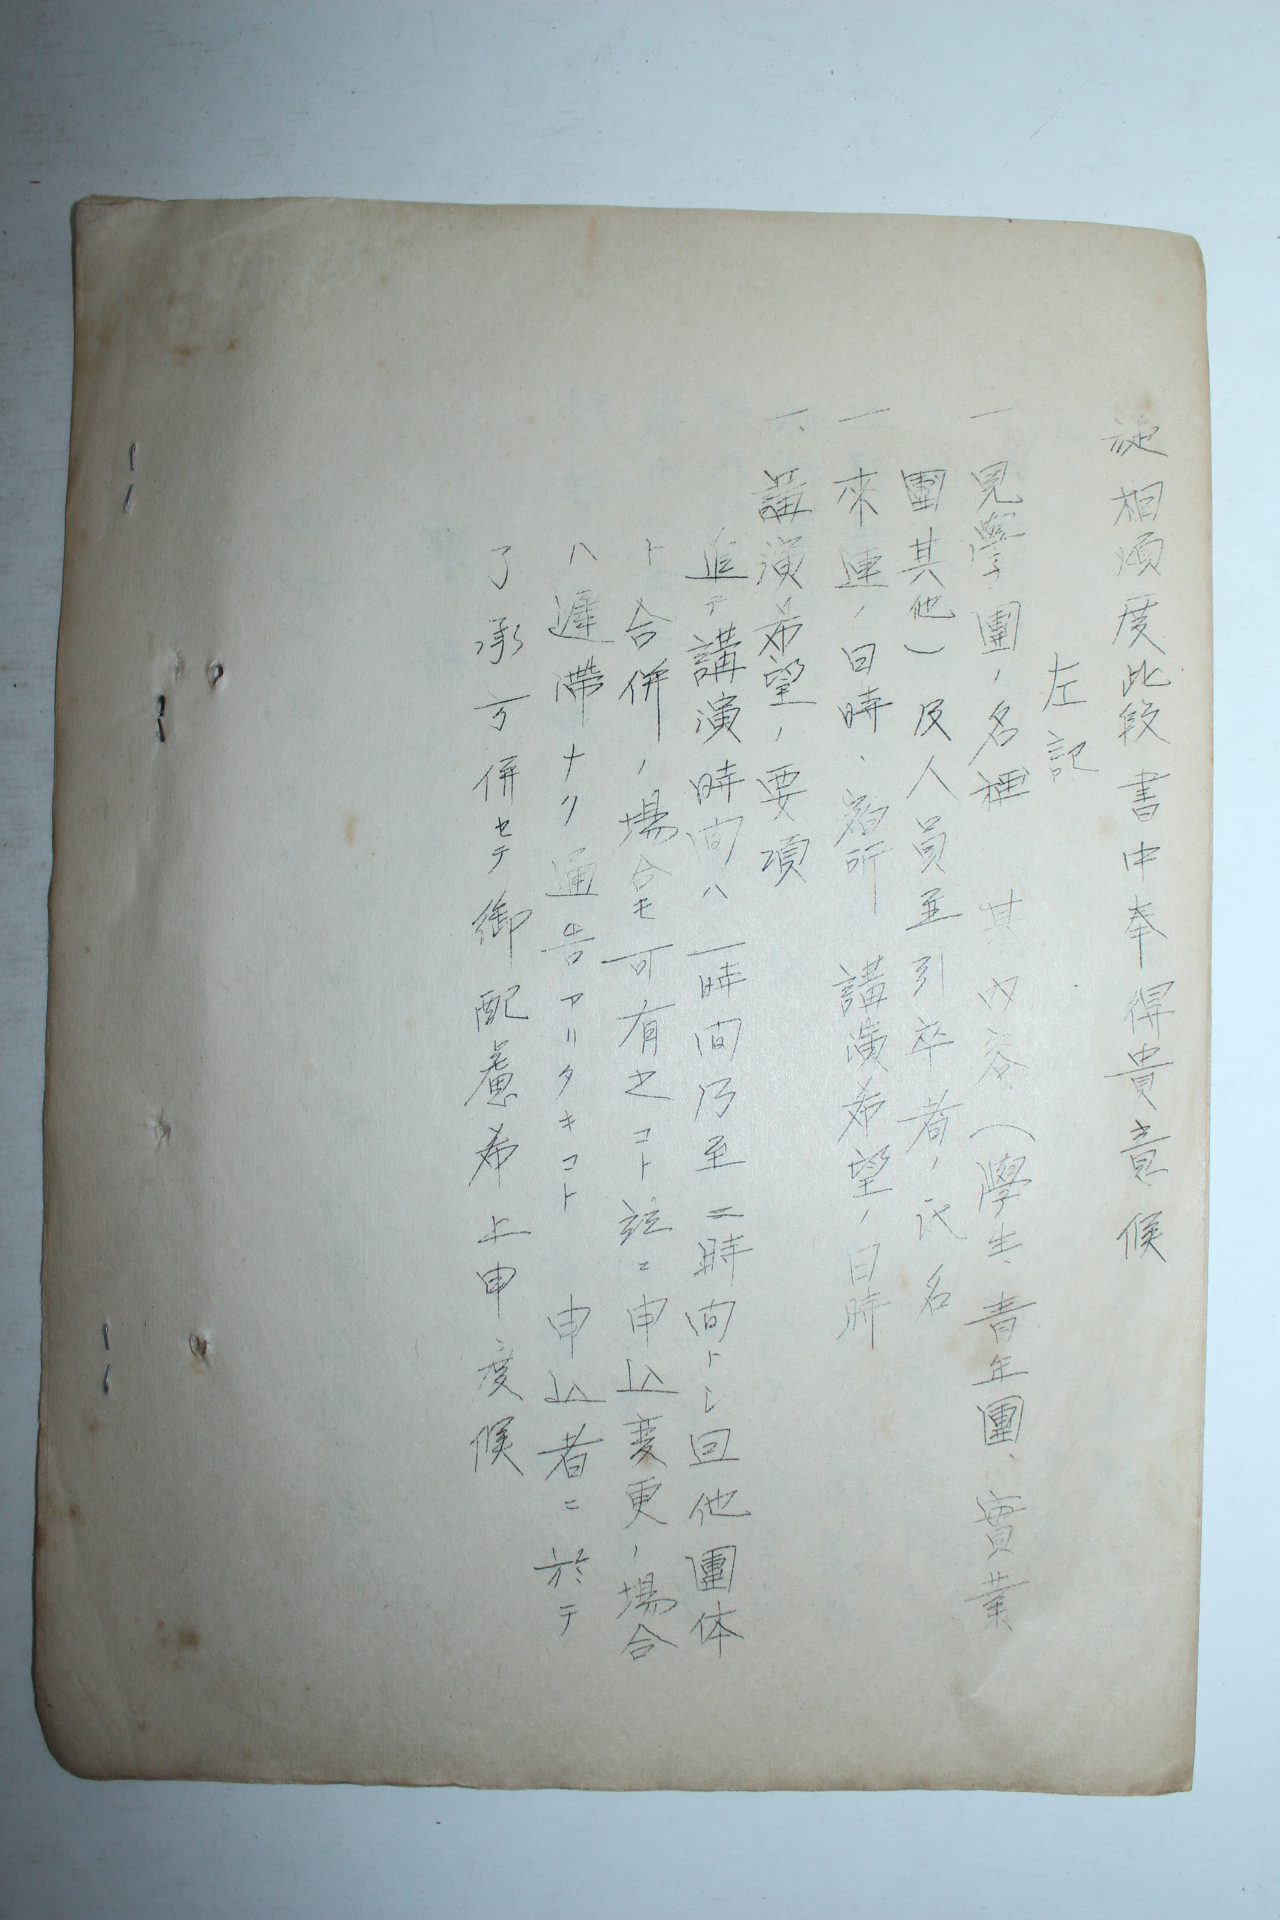 相煩度此段書中奉得貴意候
左記
一 見學團ノ名稱 其内容(學生、青年團、實業
團其他)及人員並引卒者ノ氏名
一 來連ノ日時、宿所 講演希望ノ日時
一、講演希望ノ要項
追テ講演時間ハ一時間乃至二時間トシ回他團体
ト合併ノ場合モ可有之コト竝ニ申込変更ノ場合
ハ遅滞ナク通告アリタキコト 申込者ニ於テ
了承方併セテ御配慮希上申度候